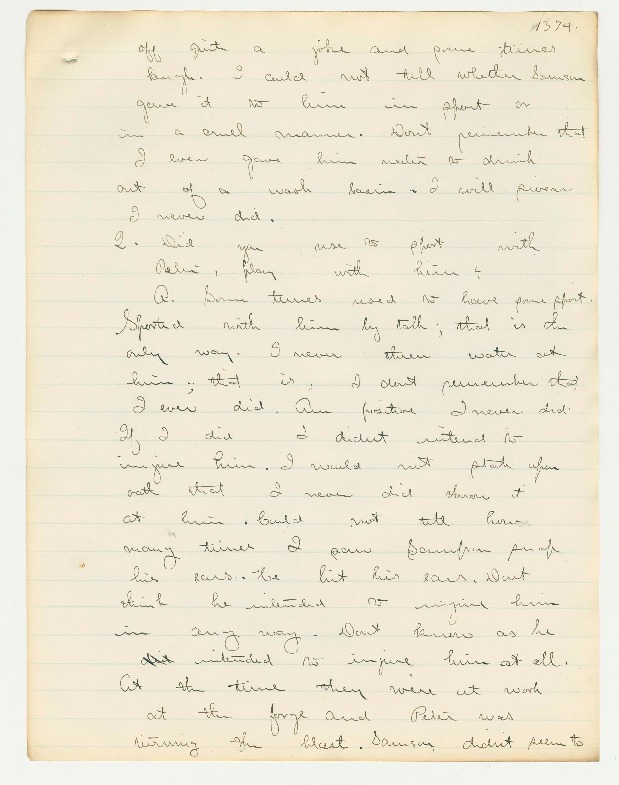 1374.
off quite a joke and some times
laugh. I could not tell whether Samson
gave it to him in sport or
in a cruel manner. Dont remember that
I ever gave him water to drink
out of a wash basin. I will swear
I never did.
Q. Did you use to sport with
Peter, play with him?
A. Some times used to have some sport.
Sported with him by talk; that is the
only way. I never threw water at
him; that is, I don't remember that
I ever did. Am positive I never did.
If I did I didn't intend to
injure him. I would not state upon
oath that I never did throw it
at him. Could not tell how
many times I saw Sampson snap
his ears. He hit his ears. Dont
think he intended to injure him
in any way. Dont know as he
intended to injure him at all.
At the time they were at work
at the forge and Peter was
turning the blast. Samson didn't seem to